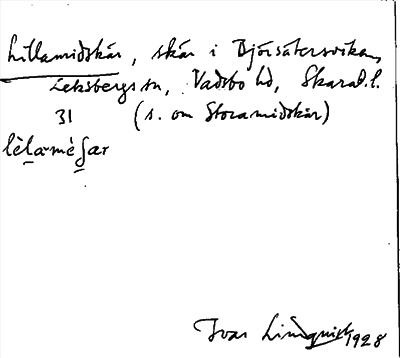 Lillamidskär, skär i Björsätersviken,
Leksbergs sn, Vadsbo hd, Skarab. l.
31 (s. om Storamidskär)
lèlamèʃar
Ivar Lindquist 1928